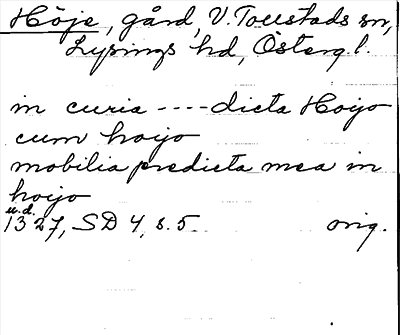 Höje, gård, V. Tollstads sn,
Lysings hd, Östergl.
in curia ---- dicta Hoijo
cum hoijo
mobilia predicta mea in
hoijo
u.d.
1327, SD 4, s. 5 orig.